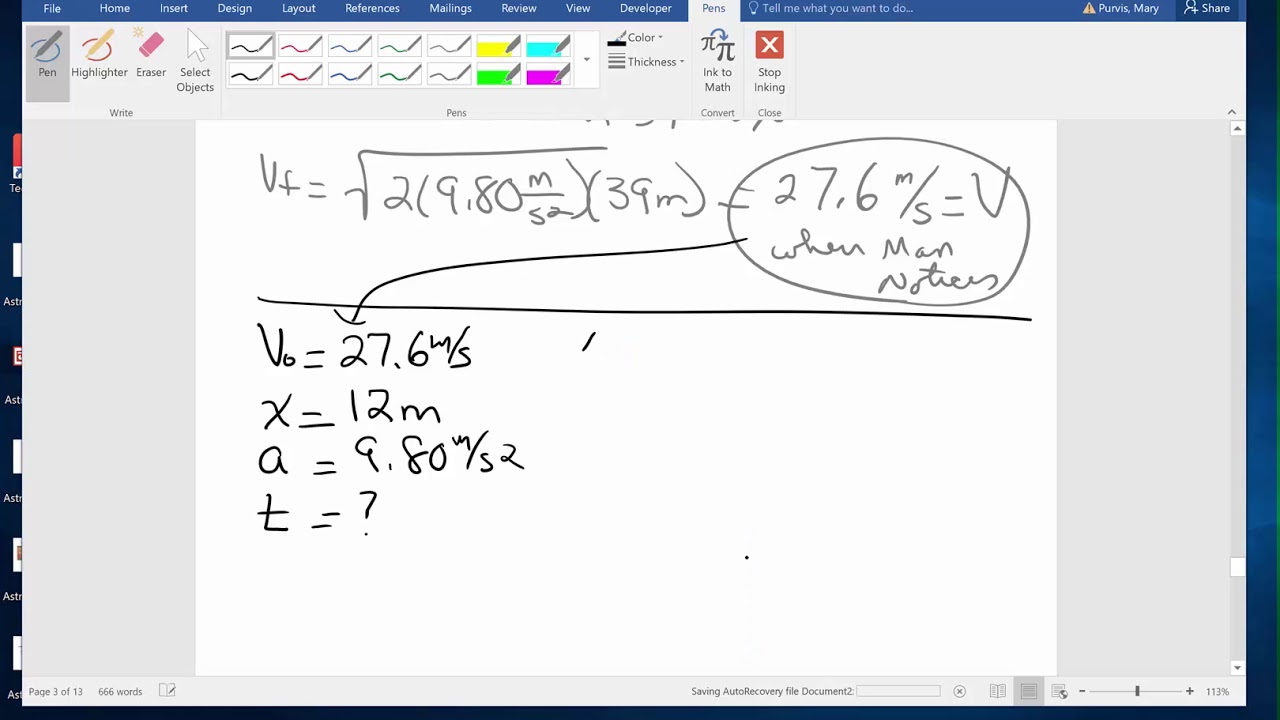 File Home Insert Design Layout References Mailings Review View Developer Pens Tell me what you want to do... Purvis, Mary Share
Pen Highlighter Eraser Select Objects Color Thickness Ink to Math Stop Inking
Write Pens Convert Close
Vf = √2(9.80 m/s2)(39m) = 27.6 m/s = V
when Man
Notices
V0 = 27.6 m/s
x = 12m
a = 9.80 m/s2
t = ?
Page 3 of 13 666 words Saving AutoRecovery file Document2: 113%